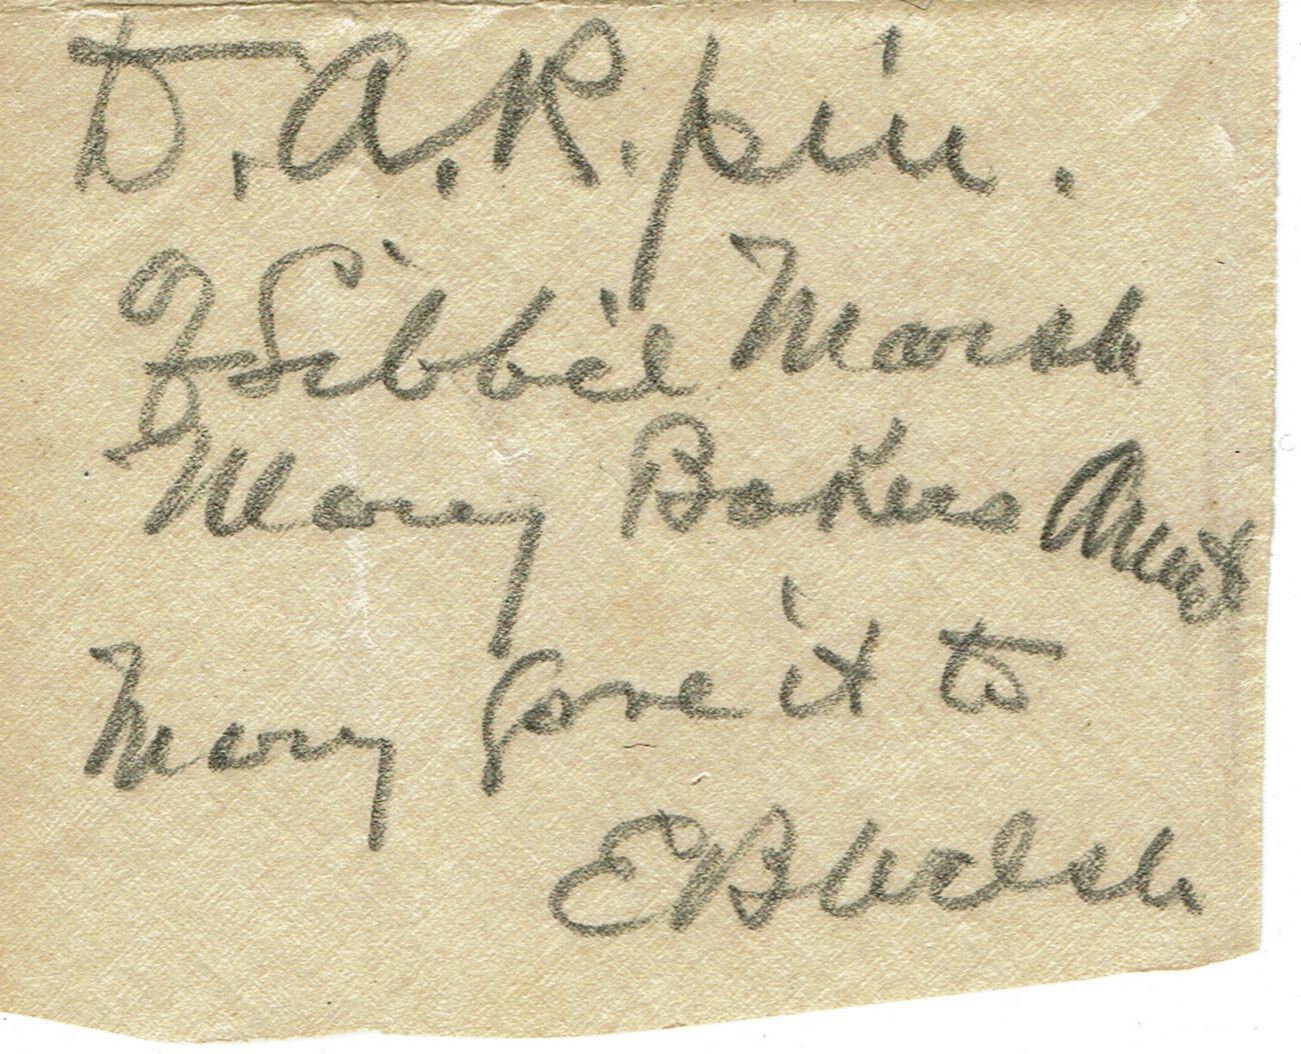 D.A.R. pin.
of Sibbil Marsh
Mary Bakers Aunt
Mary gave it to
E B Walsh